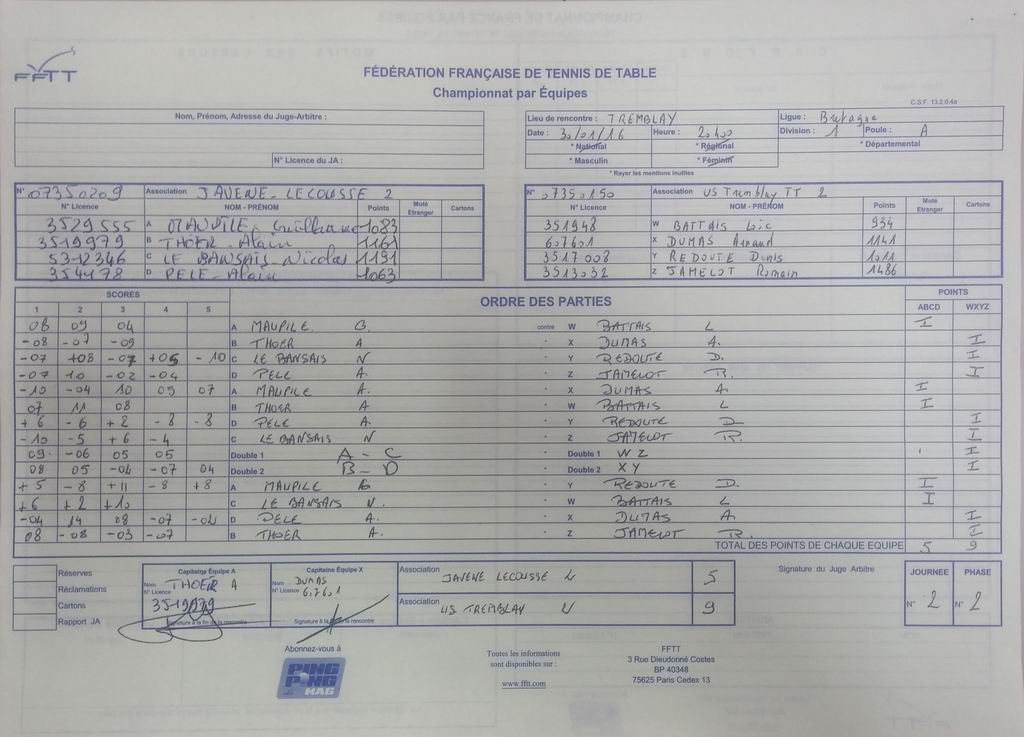 FFTT
FÉDÉRATION FRANÇAISE DE TENNIS DE TABLE
Championnat par Équipes
C.S.F. 13.2.0.4a
Nom, Prénom, Adresse du Juge-Arbitre :
N° Licence du JA :
Lieu de rencontre : TREMBLAY Ligue : Bretagne
Date : 30/01/16 Heure : 20h00 Division : 1 Poule : A
* National * Régional * Départemental
* Masculin * Féminin
* Rayer les mentions inutiles
N° 07350209 Association JAVENE-LECOUSSE 2
N° Licence NOM - PRÉNOM Points Muté Etranger Cartons
3529555 A MAUPILE Guillaume 1083
3519979 B THOER Alain 1161
5312346 C LE BANSAIS Nicolas 1191
354178 D PELE Alain 1063
N° 07350150 Association US Tremblay TT 2
N° Licence NOM - PRÉNOM Points Muté Etranger Cartons
351948 W BATTAIS Loic 934
607601 X DUMAS Arnaud 1141
3517008 Y REDOUTE Denis 1011
3513032 Z JAMELOT Romain 1486
SCORES ORDRE DES PARTIES POINTS
1 2 3 4 5 ABCD WXYZ
08 09 04 A MAUPILE G. contre W BATTAIS L I
-08 -07 -09 B THOER A " X DUMAS A. I
-07 +08 -07 +05 -10 C LE BANSAIS N " Y REDOUTE D. I
-07 10 -02 -04 D PELE A. " Z JAMELOT R. I
-10 -04 10 09 07 A MAUPILE A. " X DUMAS A. I
07 11 08 B THOER A " W BATTAIS L I
+6 -6 +2 -8 -8 D PELE A. " Y REDOUTE D I
-10 -5 +6 -4 C LE BANSAIS N " Z JAMELOT R. I
09 -06 05 05 Double 1 A - C " Double 1 W Z I
08 05 -04 -07 04 Double 2 B - D " Double 2 X Y I
+5 -8 +11 -8 +8 A MAUPILE G " Y REDOUTE D. I
+6 +2 +10 C LE BANSAIS N. " W BATTAIS L I
-04 14 08 -07 -02 D PELE A. " X DUMAS A. I
08 -08 -03 -07 B THOER A. " Z JAMELOT R. I
TOTAL DES POINTS DE CHAQUE EQUIPE 5 9
Réserves
Réclamations
Cartons
Rapport JA
Capitaine Équipe A
Nom THOER A
N° Licence 3519979
Signature à la fin de la rencontre
Capitaine Équipe X
Nom DUMAS
N° Licence 607601
Signature à la fin de la rencontre
Association JAVENE LECOUSSE 2 5
Association US TREMBLAY 2 9
Signature du Juge Arbitre
JOURNEE PHASE
N° 2 N° 2
Abonnez-vous à
PING PONG MAG
Toutes les informations
sont disponibles sur :
www.fftt.com
FFTT
3 Rue Dieudonné Costes
BP 40348
75625 Paris Cedex 13